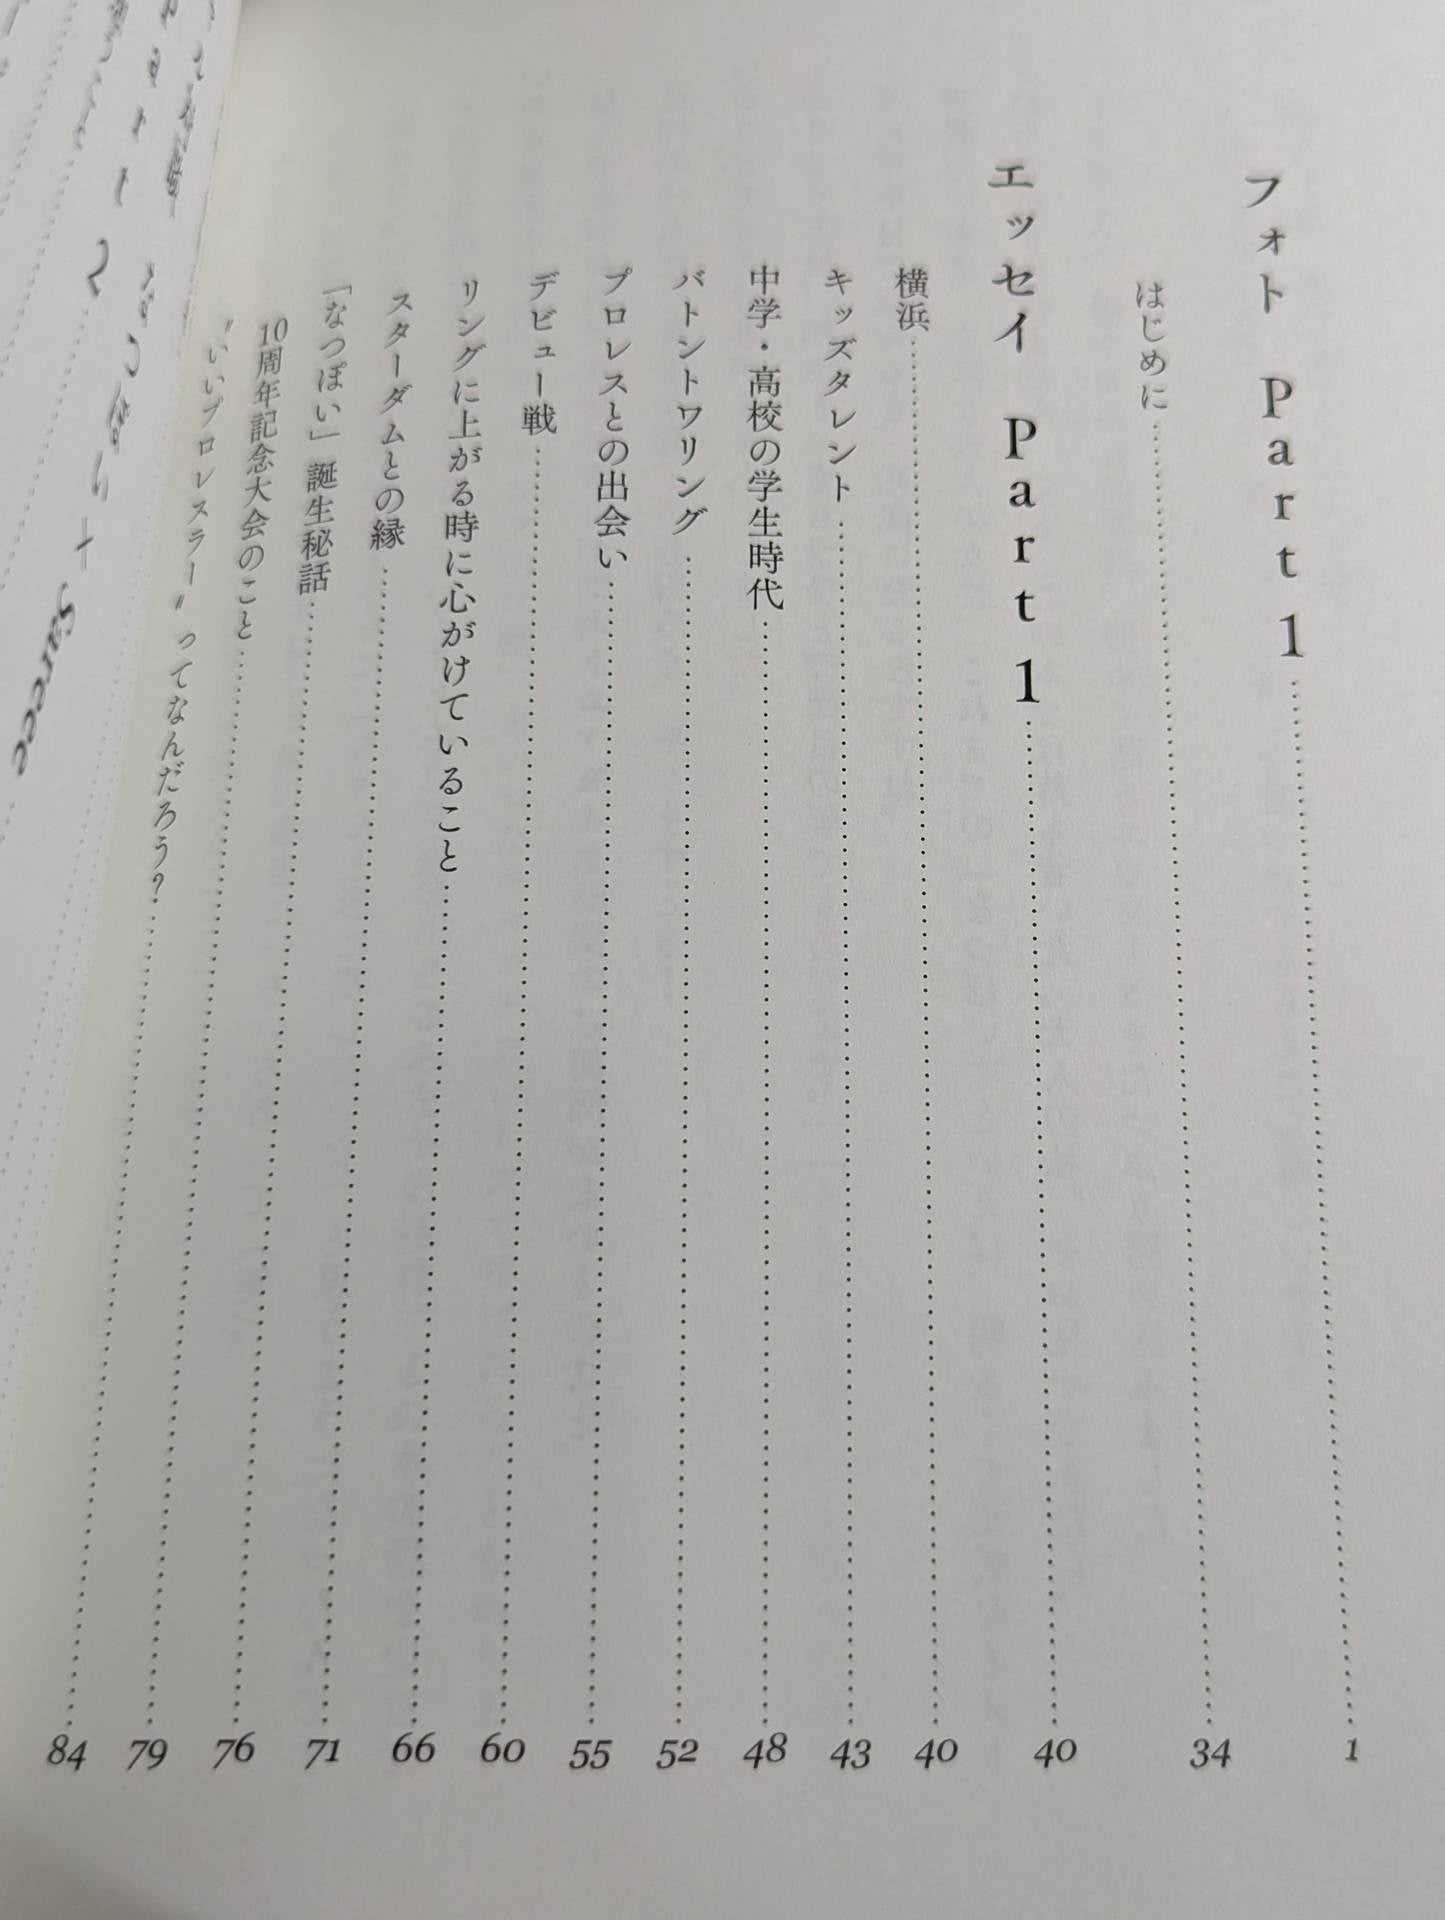 フォト Part 1 …… 1
はじめに …… 34
エッセイ Part 1 …… 40
横浜 …… 40
キッズタレント …… 43
中学・高校の学生時代 …… 48
バトントワリング …… 52
プロレスとの出会い …… 55
デビュー戦 …… 60
リングに上がる時に心がけていること …… 66
スターダムとの縁 …… 71
「なつぽい」誕生秘話 …… 76
10周年記念大会のこと …… 79
〝いいプロレスラー〟ってなんだろう? …… 84
なつぽい+Sareee